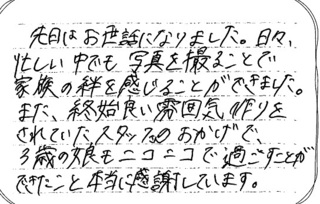 先日はお世話になりました。日々、
忙しい中でも写真を撮ることで
家族の絆を感じることができました。
また、終始良い雰囲気作りを
されていたスタッフのおかげで、
3歳の娘もニコニコで過ごすことが
できたこと本当に感謝しています。